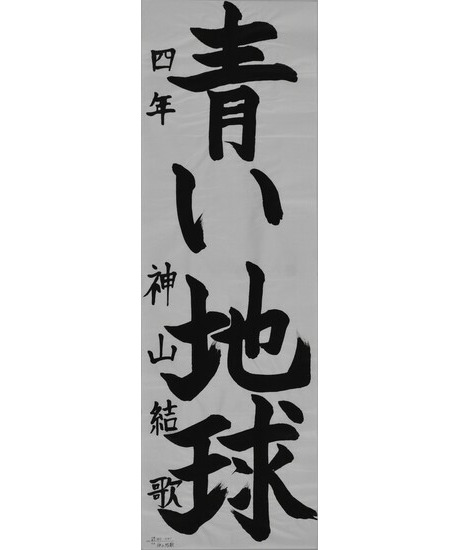 青い地球
四年 神山結歌